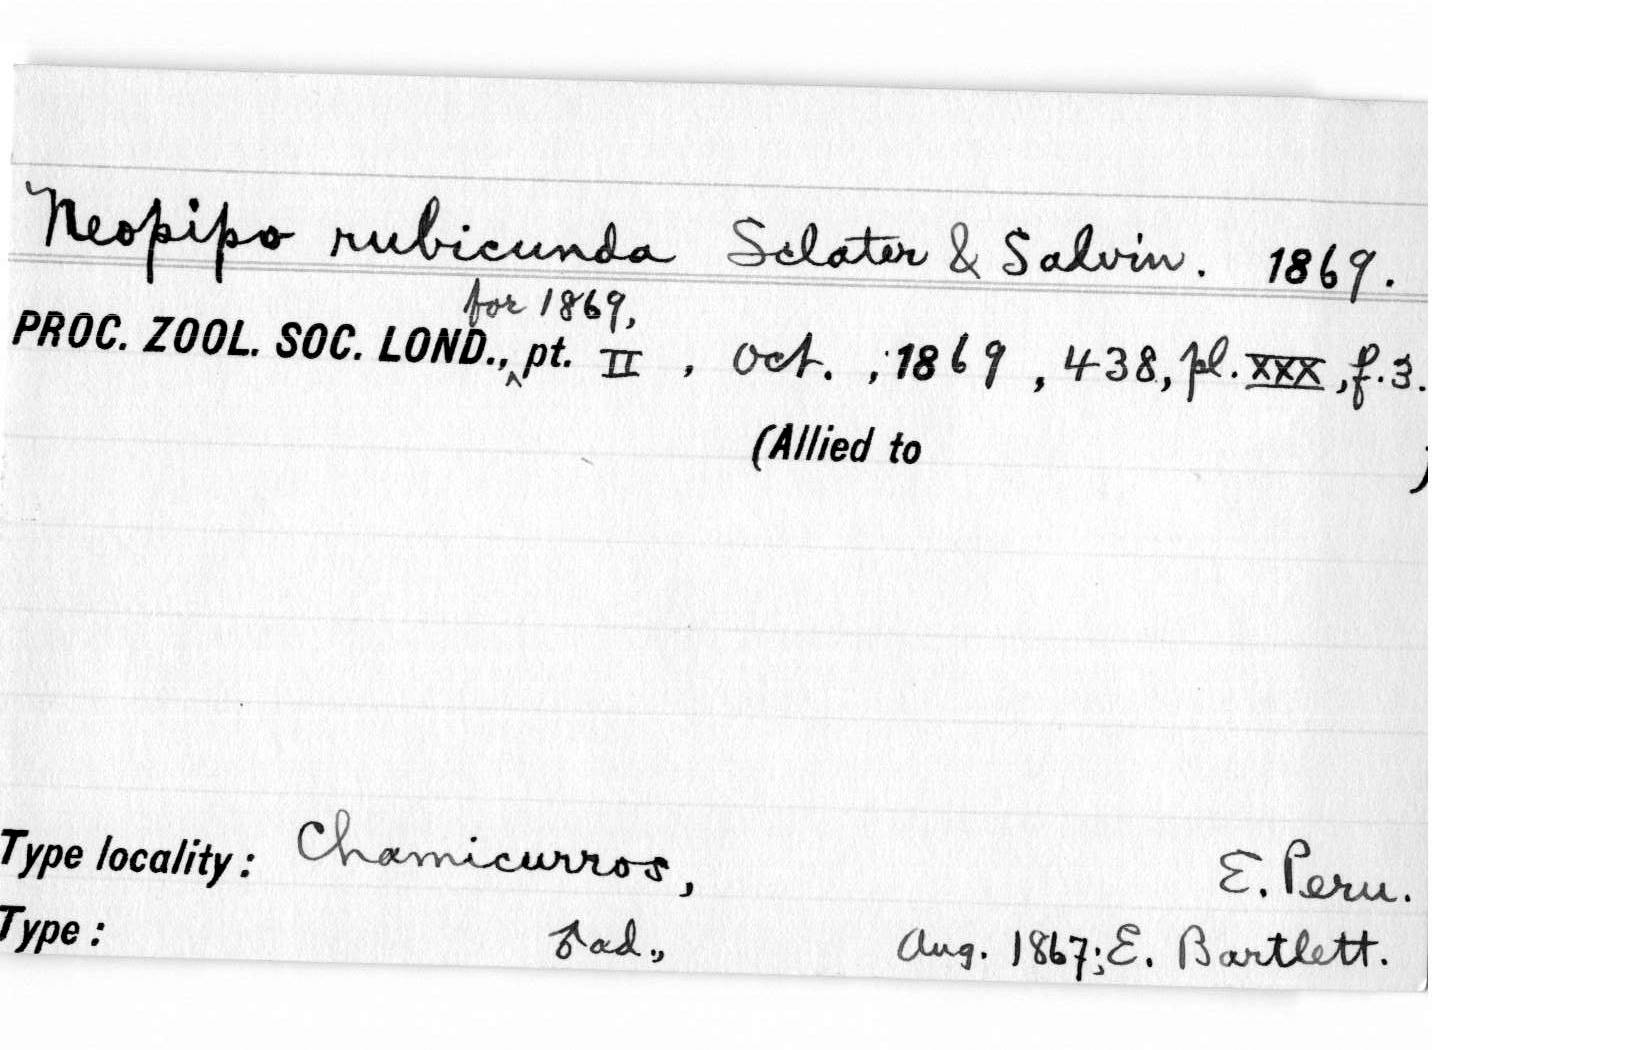 Neopipo rubicunda Sclater & Salvin. 1869.
for 1869,
PROC. ZOOL. SOC. LOND., ^ pt. II , Oct. , 1869 , 438, pl. XXX , f. 3.
(Allied to )
Type locality: Chamicurros, E. Peru.
Type: ad., Aug. 1867; E. Bartlett.